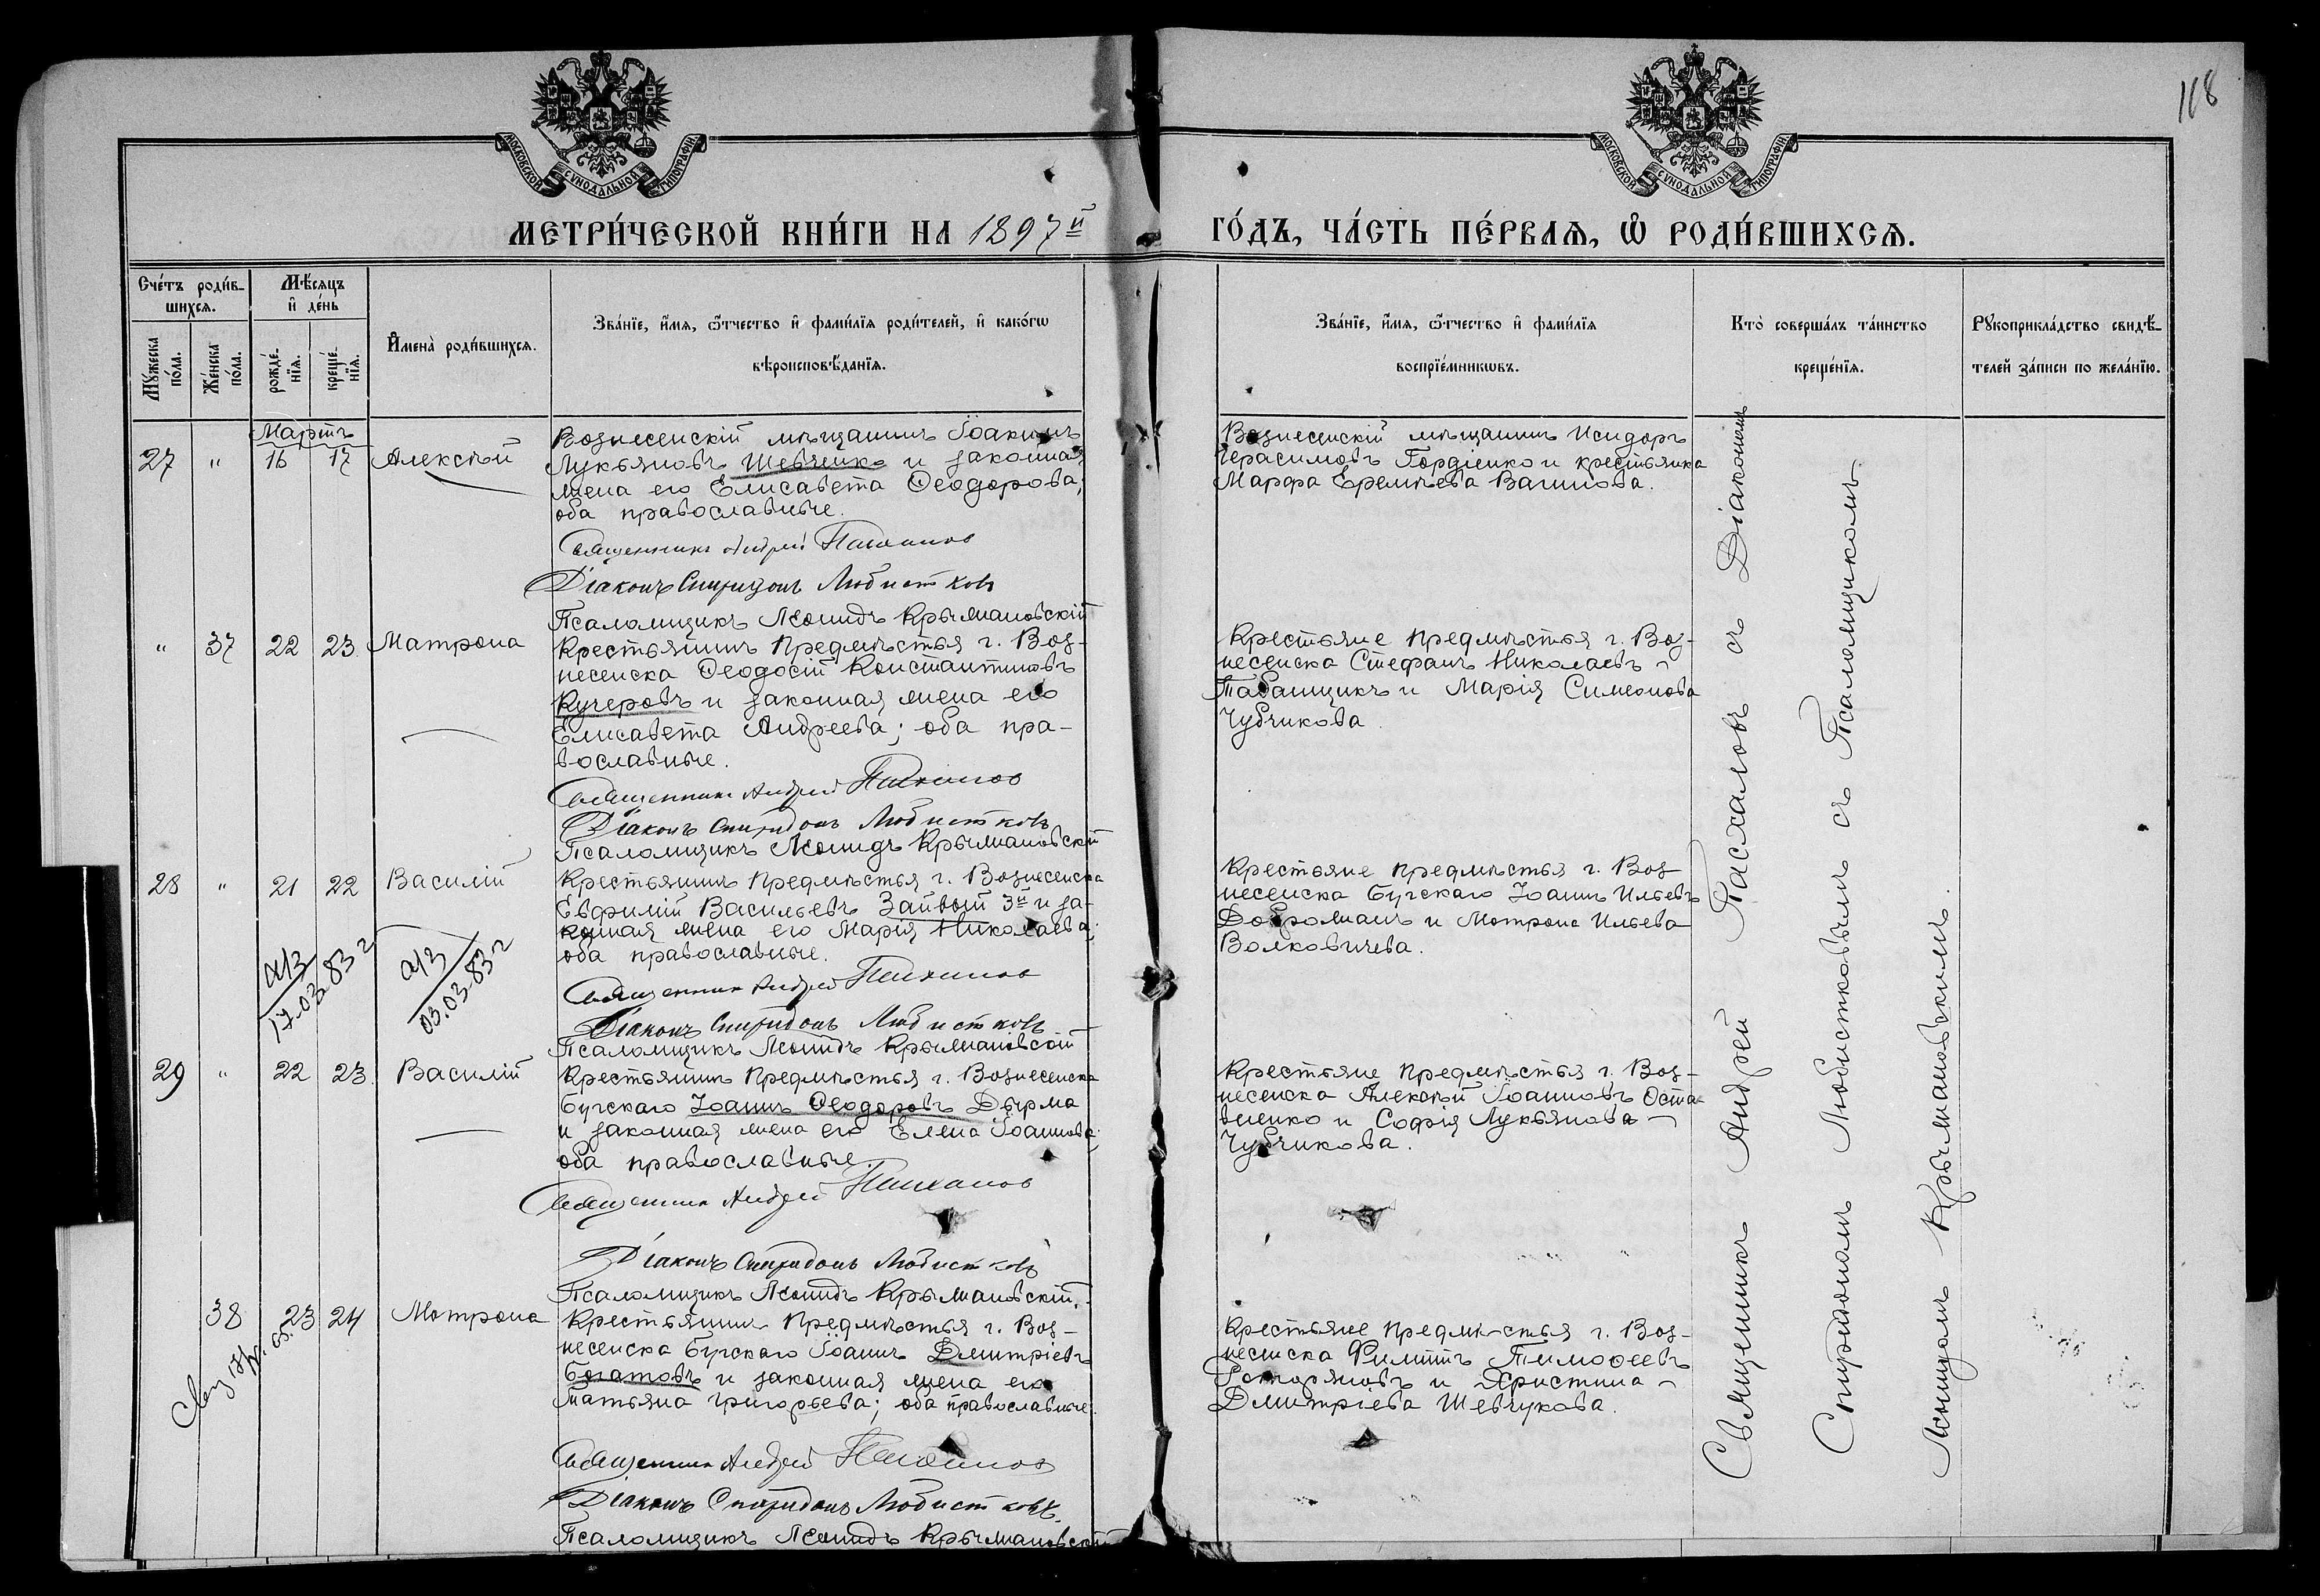 118
МОСКОВСКОЙ СѴНОДАЛЬНОЙ ТИПОГРАФІИ.
МОСКОВСКОЙ СѴНОДАЛЬНОЙ ТИПОГРАФІИ.
МЕТРИ́ЧЕСКОЙ КНИ́ГИ НА 1897й ГО́ДЪ, ЧА́СТЬ ПЕ́РВАѦ, Ѡ РОДИ́ВШИХСѦ.
Сче́тъ роди́в-
шихсѧ.
Мѣ́сѧцъ
и҆ де́нь
Мꙋ́жеска
по́ла.
Же́нска
по́ла.
рожде́-
нїѧ.
креще́-
нїѧ.
И҆мена̀ роди́вшихсѧ.
Зва́нїе, и҆́мѧ, ѻ҆́тчество и҆ фами́лїѧ роди́телей, и҆ како́гѡ
вѣроисповѣ́данїѧ.
Зва́нїе, и҆́мѧ, ѻ҆́тчество и҆ фами́лїѧ
воспрїе́мникѡвъ.
Кто̀ соверша́лъ та́инство
креще́нїѧ.
Рꙋкоприкла́дство свидѣ́-
телей за́писи по жела́нїю.
Мартъ
27 " 16 17 Алексѣй
Вознесенскій мѣщанинъ Іоакимъ
Лукьяновъ Шевченко и законная
жена его Елисавета Ѳеодорова;
оба православные.
Священникъ Андрей Пасхаловъ
Діаконъ Спиридонъ Любистковъ
Псаломщикъ Леонидъ Крыжановскій
Вознесенскій мѣщанинъ Исидоръ
Герасимовъ Гордіенко и крестьянка
Марфа Еремѣева Вагинова.
" 37 22 23 Матрона
Крестьянинъ предмѣстья г. Воз-
несенска Ѳеодосій Константиновъ
Кучеровъ и законная жена его
Елисавета Андреева; оба пра-
вославные.
Священникъ Андрей Пасхаловъ
Діаконъ Спиридонъ Любистковъ
Псаломщикъ Леонидъ Крыжановскій
Крестьяне предмѣстья г. Воз-
несенска Стефанъ Николаевъ
Табанщикъ и Марія Симеонова
Чубчикова.
28 " 21 22 Василій
Крестьянинъ предмѣстья г. Вознесенска
Евфимій Васильевъ Зайвый 3й и за-
конная жена его Марія Николаева;
оба православные.
Священникъ Андрей Пасхаловъ
Діаконъ Спиридонъ Любистковъ
Псаломщикъ Леонидъ Крыжановскій
Крестьяне предмѣстья г. Воз
несенска Бугскаго Іоаннъ Ильевъ
Доброманъ и Мотрона Ильева
Волковичева.
17.03.83 г
03.03.83 г
29 " 22 23 Василій
Крестьянинъ предмѣстья г. Вознесенска
Бугскаго Іоаннъ Ѳеодоровъ Дырма
и законная жена его Елена Іоаннова;
оба православные.
Священникъ Андрей Пасхаловъ
Діаконъ Спиридонъ Любистковъ
Псаломщикъ Леонидъ Крыжановскій.
Крестьяне предмѣстья г. Воз-
несенска Алексѣй Іоанновъ Оста-
вненко и Софія Лукьянова
Чубчикова.
38 23 24 Мотрона
Крестьянинъ предмѣстья г. Воз-
несенска Бугскаго Іоаннъ Дмитріевъ
Богатовъ и законная жена его
Татьяна Григорьева; оба православные.
Священникъ Андрей Пасхаловъ
Діаконъ Спиридонъ Любистковъ.
Псаломщикъ Леонидъ Крыжановскій
Крестьяне предмѣстья г. Воз-
несенска Филиппъ Тимоѳеевъ
и Христина
Дмитріева Шевчукова.
Священникъ Андрей Пасхаловъ съ Діакономъ
Спиридономъ Любистковымъ съ Псаломщикомъ
Леонидомъ Крыжановскимъ.